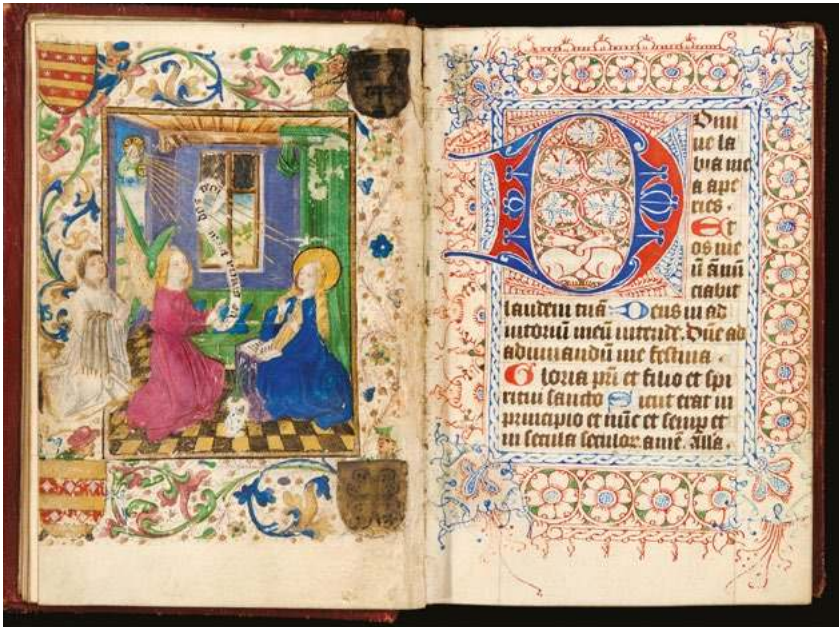 DOmi
ne la
bia me
a ape
ries .
Et
os me
ū ānū
ciabit
laudem tuā Deus in ad
iutoriū meū intende. Dñe ad
adiuuandū me festina .
Gloria pr̄i et filio et spi
ritui sancto Sicut erat in
principio et nūc et semp et
in secula seculor amē. Alla .